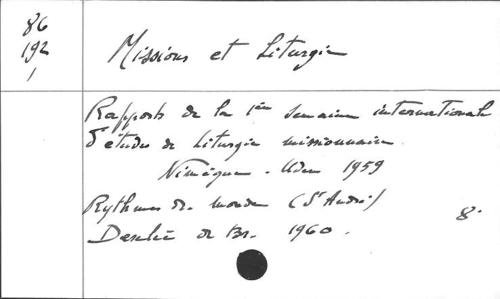 86
192
1
Missions et Liturgie
Rapports de la 1ère semaine internationale
d'études de Liturgie missionnaire.
Nimègue - Uden 1959
Rythmes du monde (St André)
Desclée de Br. 1960.
8°